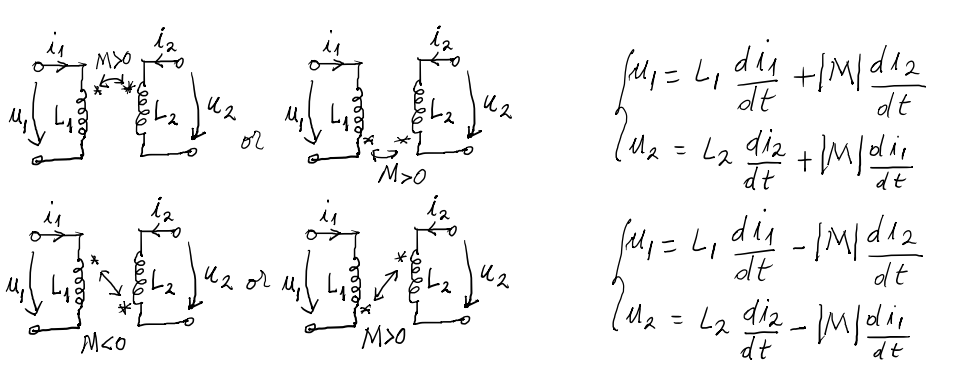 i₁ M>0 i₂ i₁ i₂
u₁ L₁ * * L₂ u₂ or u₁ L₁ * * L₂ u₂
M>0
u₁ = L₁ di₁/dt + |M| di₂/dt
u₂ = L₂ di₂/dt + |M| di₁/dt
i₁ i₂ i₁ i₂
u₁ L₁ * * L₂ u₂ or u₁ L₁ * * L₂ u₂
M<0 M>0
u₁ = L₁ di₁/dt - |M| di₂/dt
u₂ = L₂ di₂/dt - |M| di₁/dt